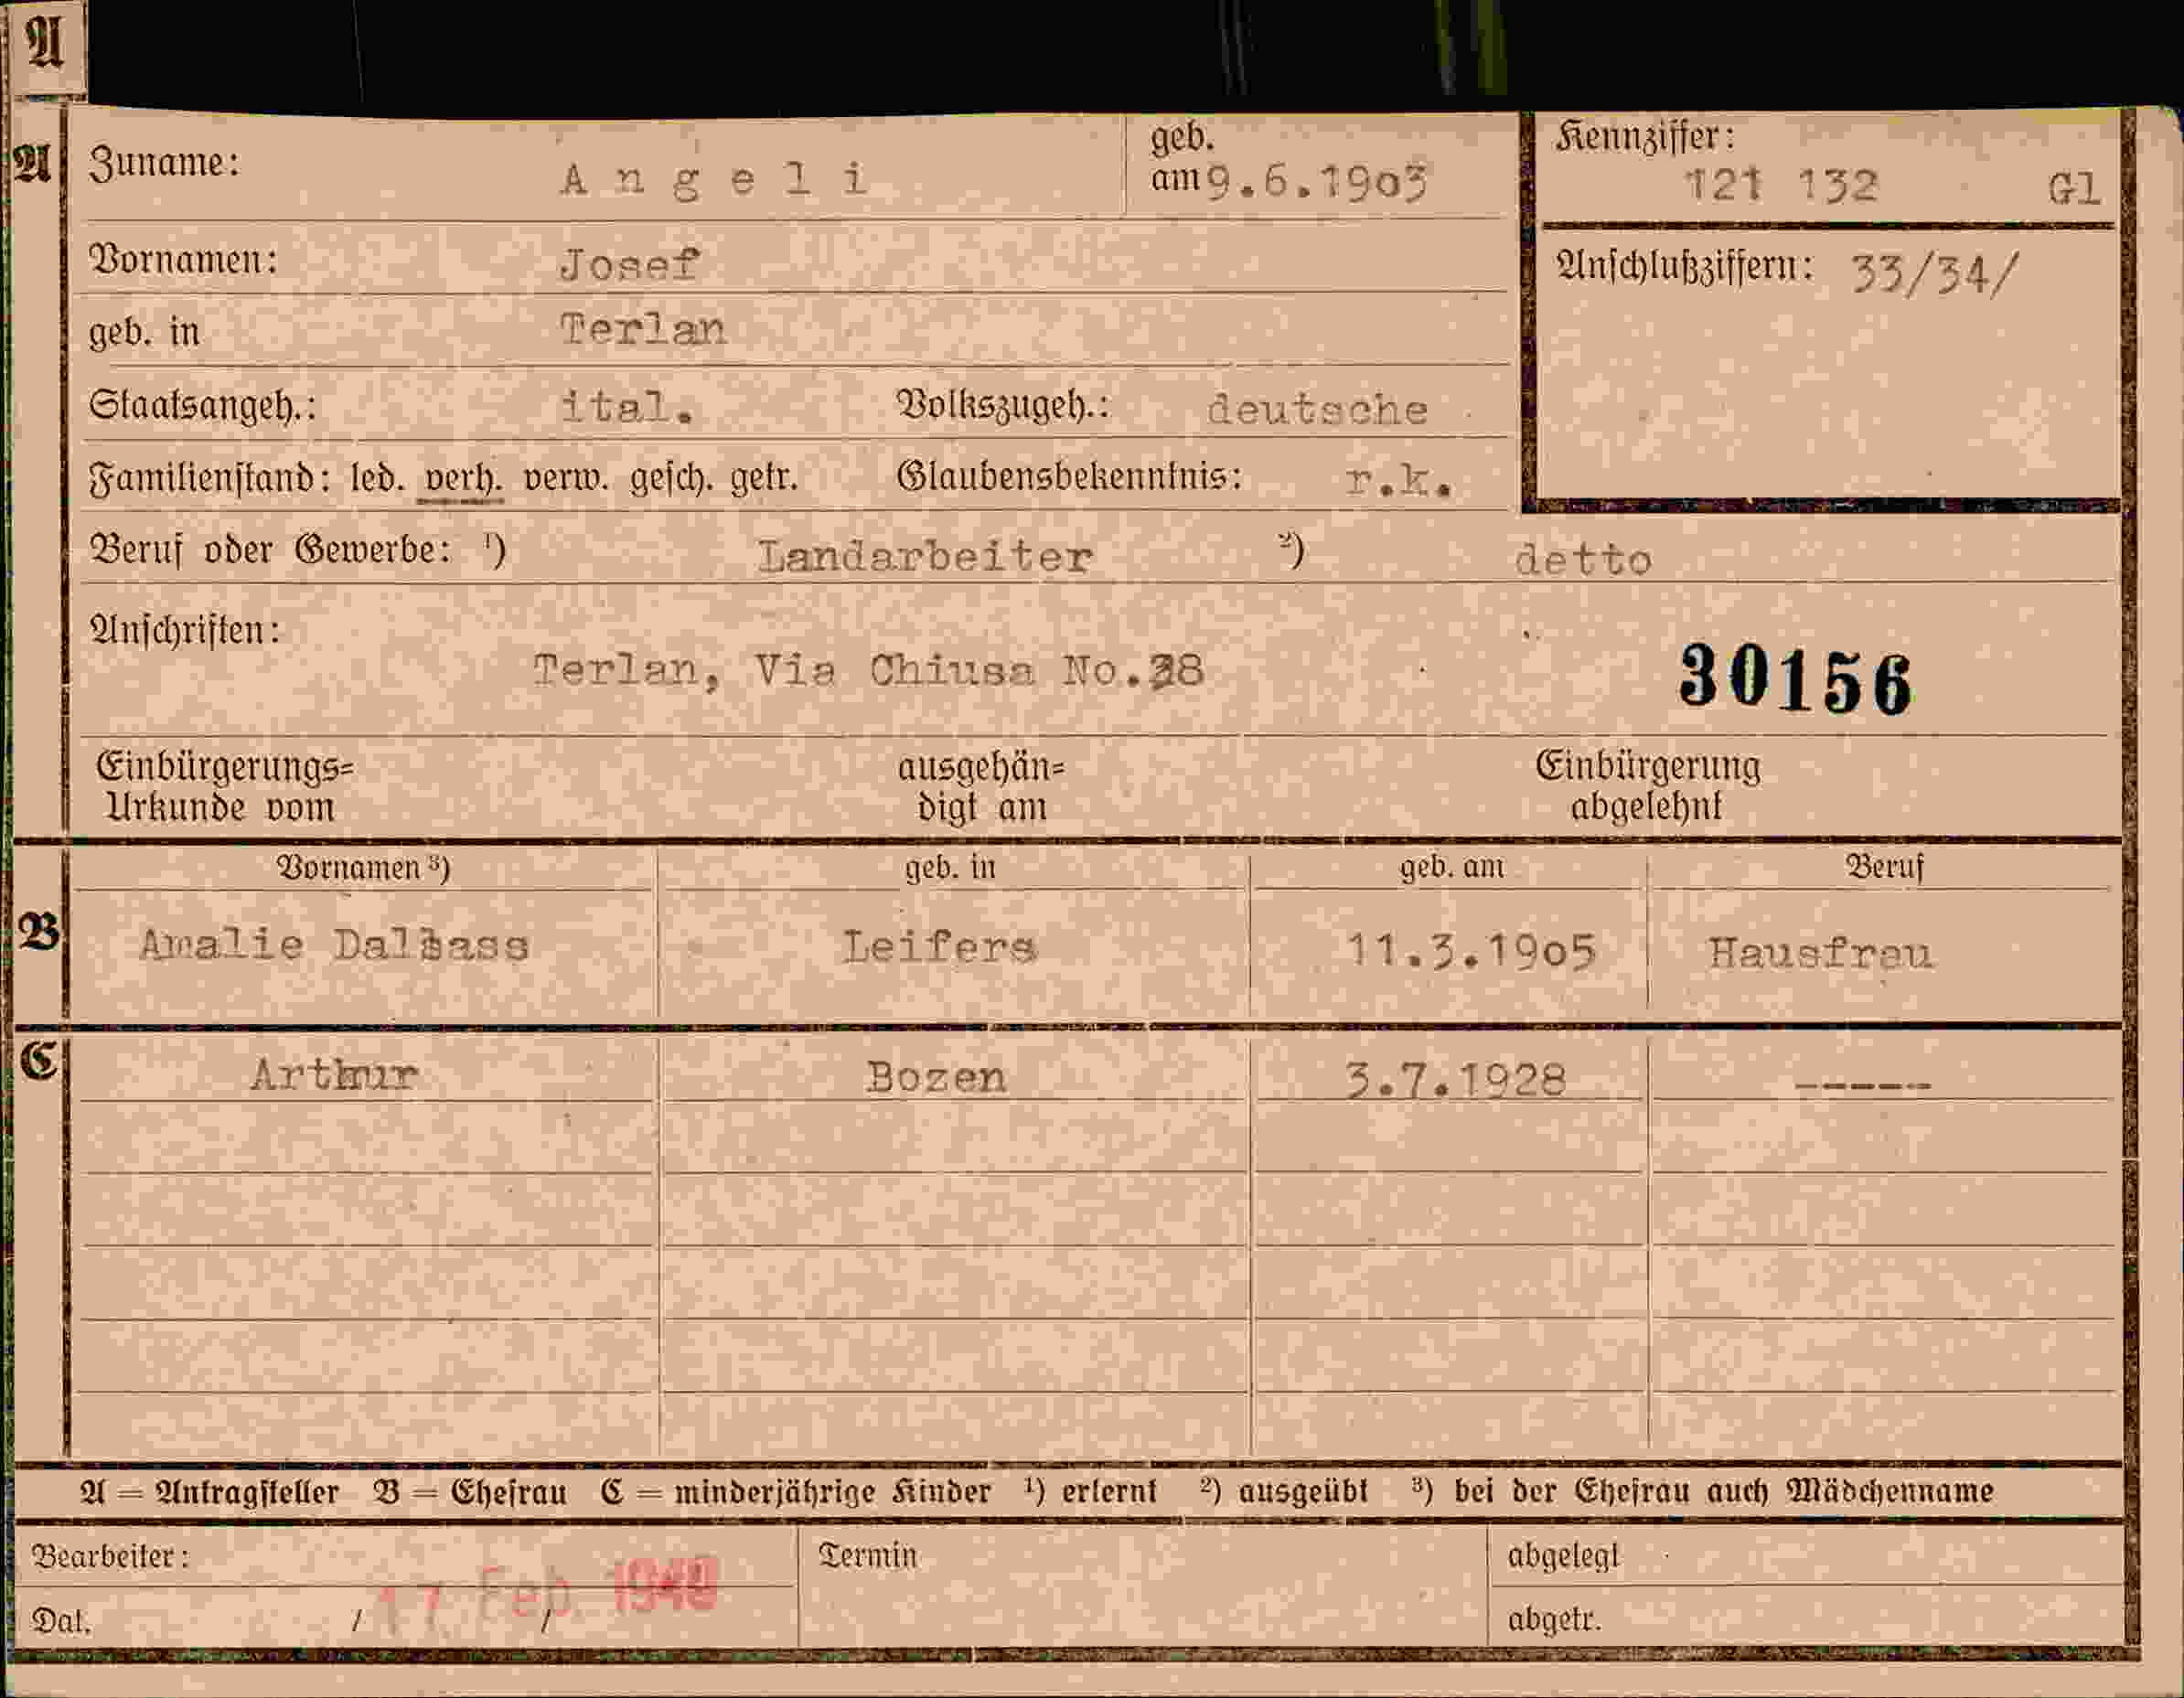 A
A
Zuname: Angeli geb. am 9.6.1903 Kennziffer: 121 132 Gl
Vornamen: Josef Anschlußziffern: 33/34/
geb. in Terlan
Staatsangeh.: ital. Volkszugeh.: deutsche
Familienstand: led. verh. verw. gesch. getr. Glaubensbekenntnis: r.k.
Beruf oder Gewerbe: ¹) Landarbeiter ²) detto
Anschriften:
Terlan, Via Chiusa No. 30156
Einbürgerungs= ausgehän= Einbürgerung
Urkunde vom digt am abgelehnt
Vornamen ³) geb. in geb. am Beruf
B
Amalie Leifers 11.3.1905 Hausfrau
C
Arthur Bozen 3.7.1928 -----
A = Antragsteller B = Ehefrau C = minderjährige Kinder ¹) erlernt ²) ausgeübt ³) bei der Ehefrau auch Mädchenname
Bearbeiter: Termin abgelegt
17. Feb. 1940
Dat. / / abgetr.